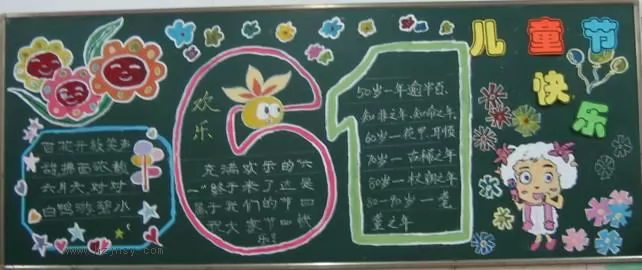 儿童节
快乐
欢乐
61
百花开放笑声
甜拂面浓龄
六月天对对
白鸭游碧小
充满欢乐的"六
一"终于来了这是
属于我们的节日
祝大家节日快
乐!
50岁—年逾半百、
知非之年、知命之年,
60岁—花甲、耳顺
70岁—古稀之年
80岁—杖朝之年
80-90岁—耄
耋之年